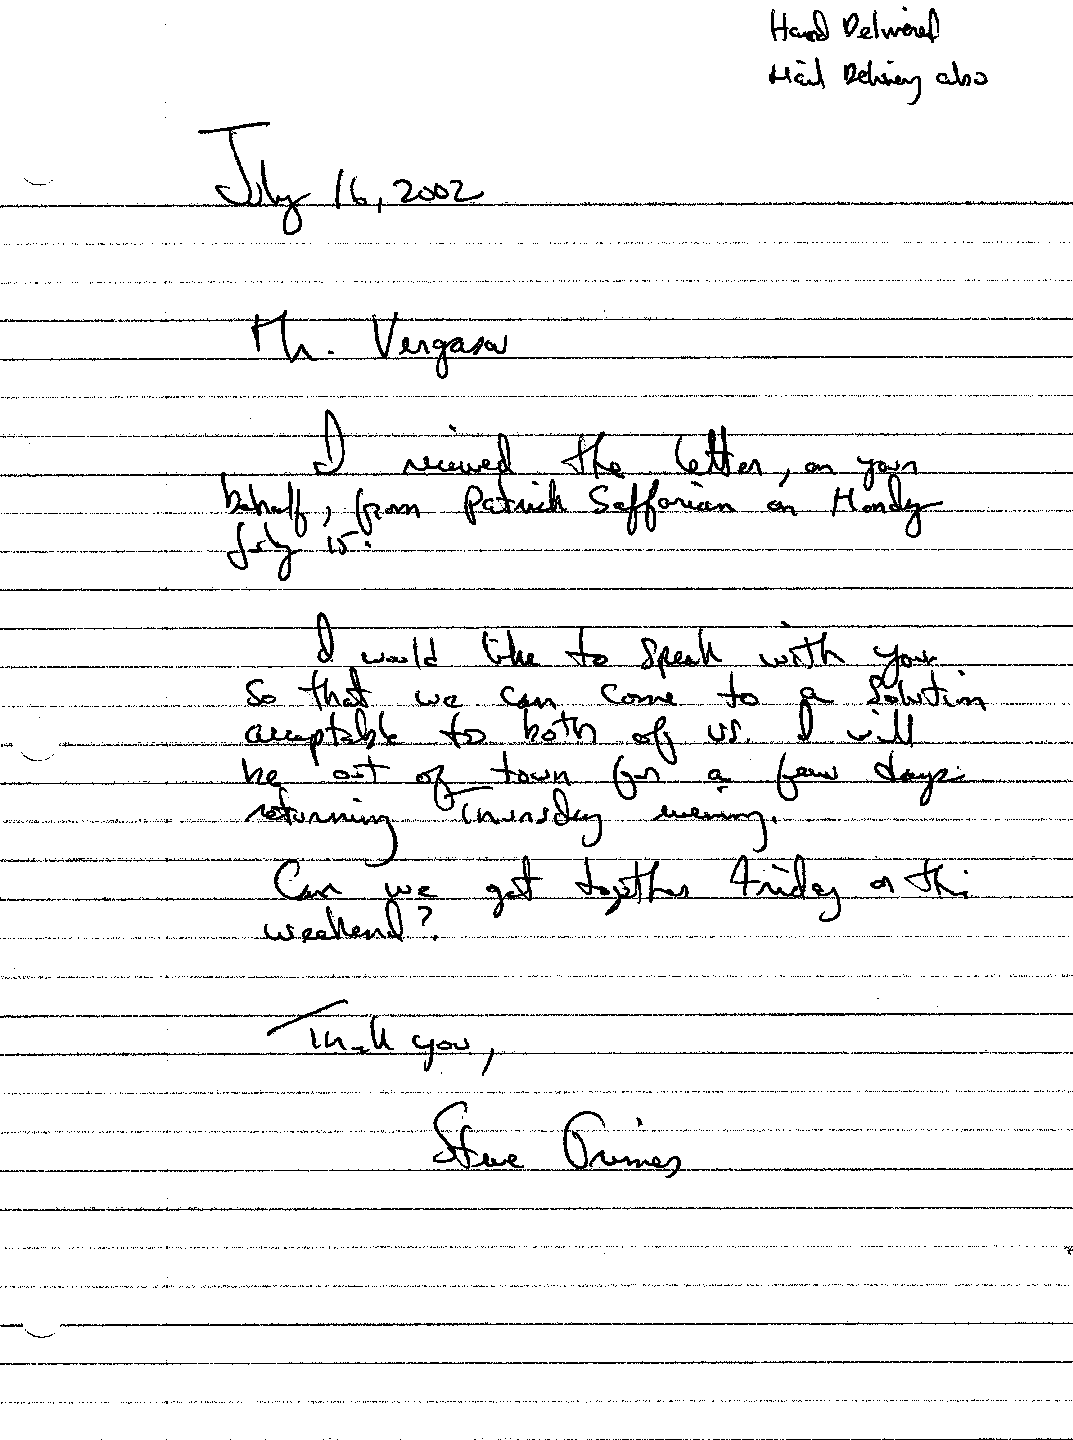 Hand Delivered
Mail Delivery also
July 16, 2002
Mr. Vergasov
I received the letter, on your
behalf, from Patrick Saffarian on Monday
July 15.
I would like to speak with you
so that we can come to a solution
acceptable to both of us. I will
be out of town for a few days
returning Thursday evening.
Can we get together Friday or this
weekend?
Thank you,
Steve